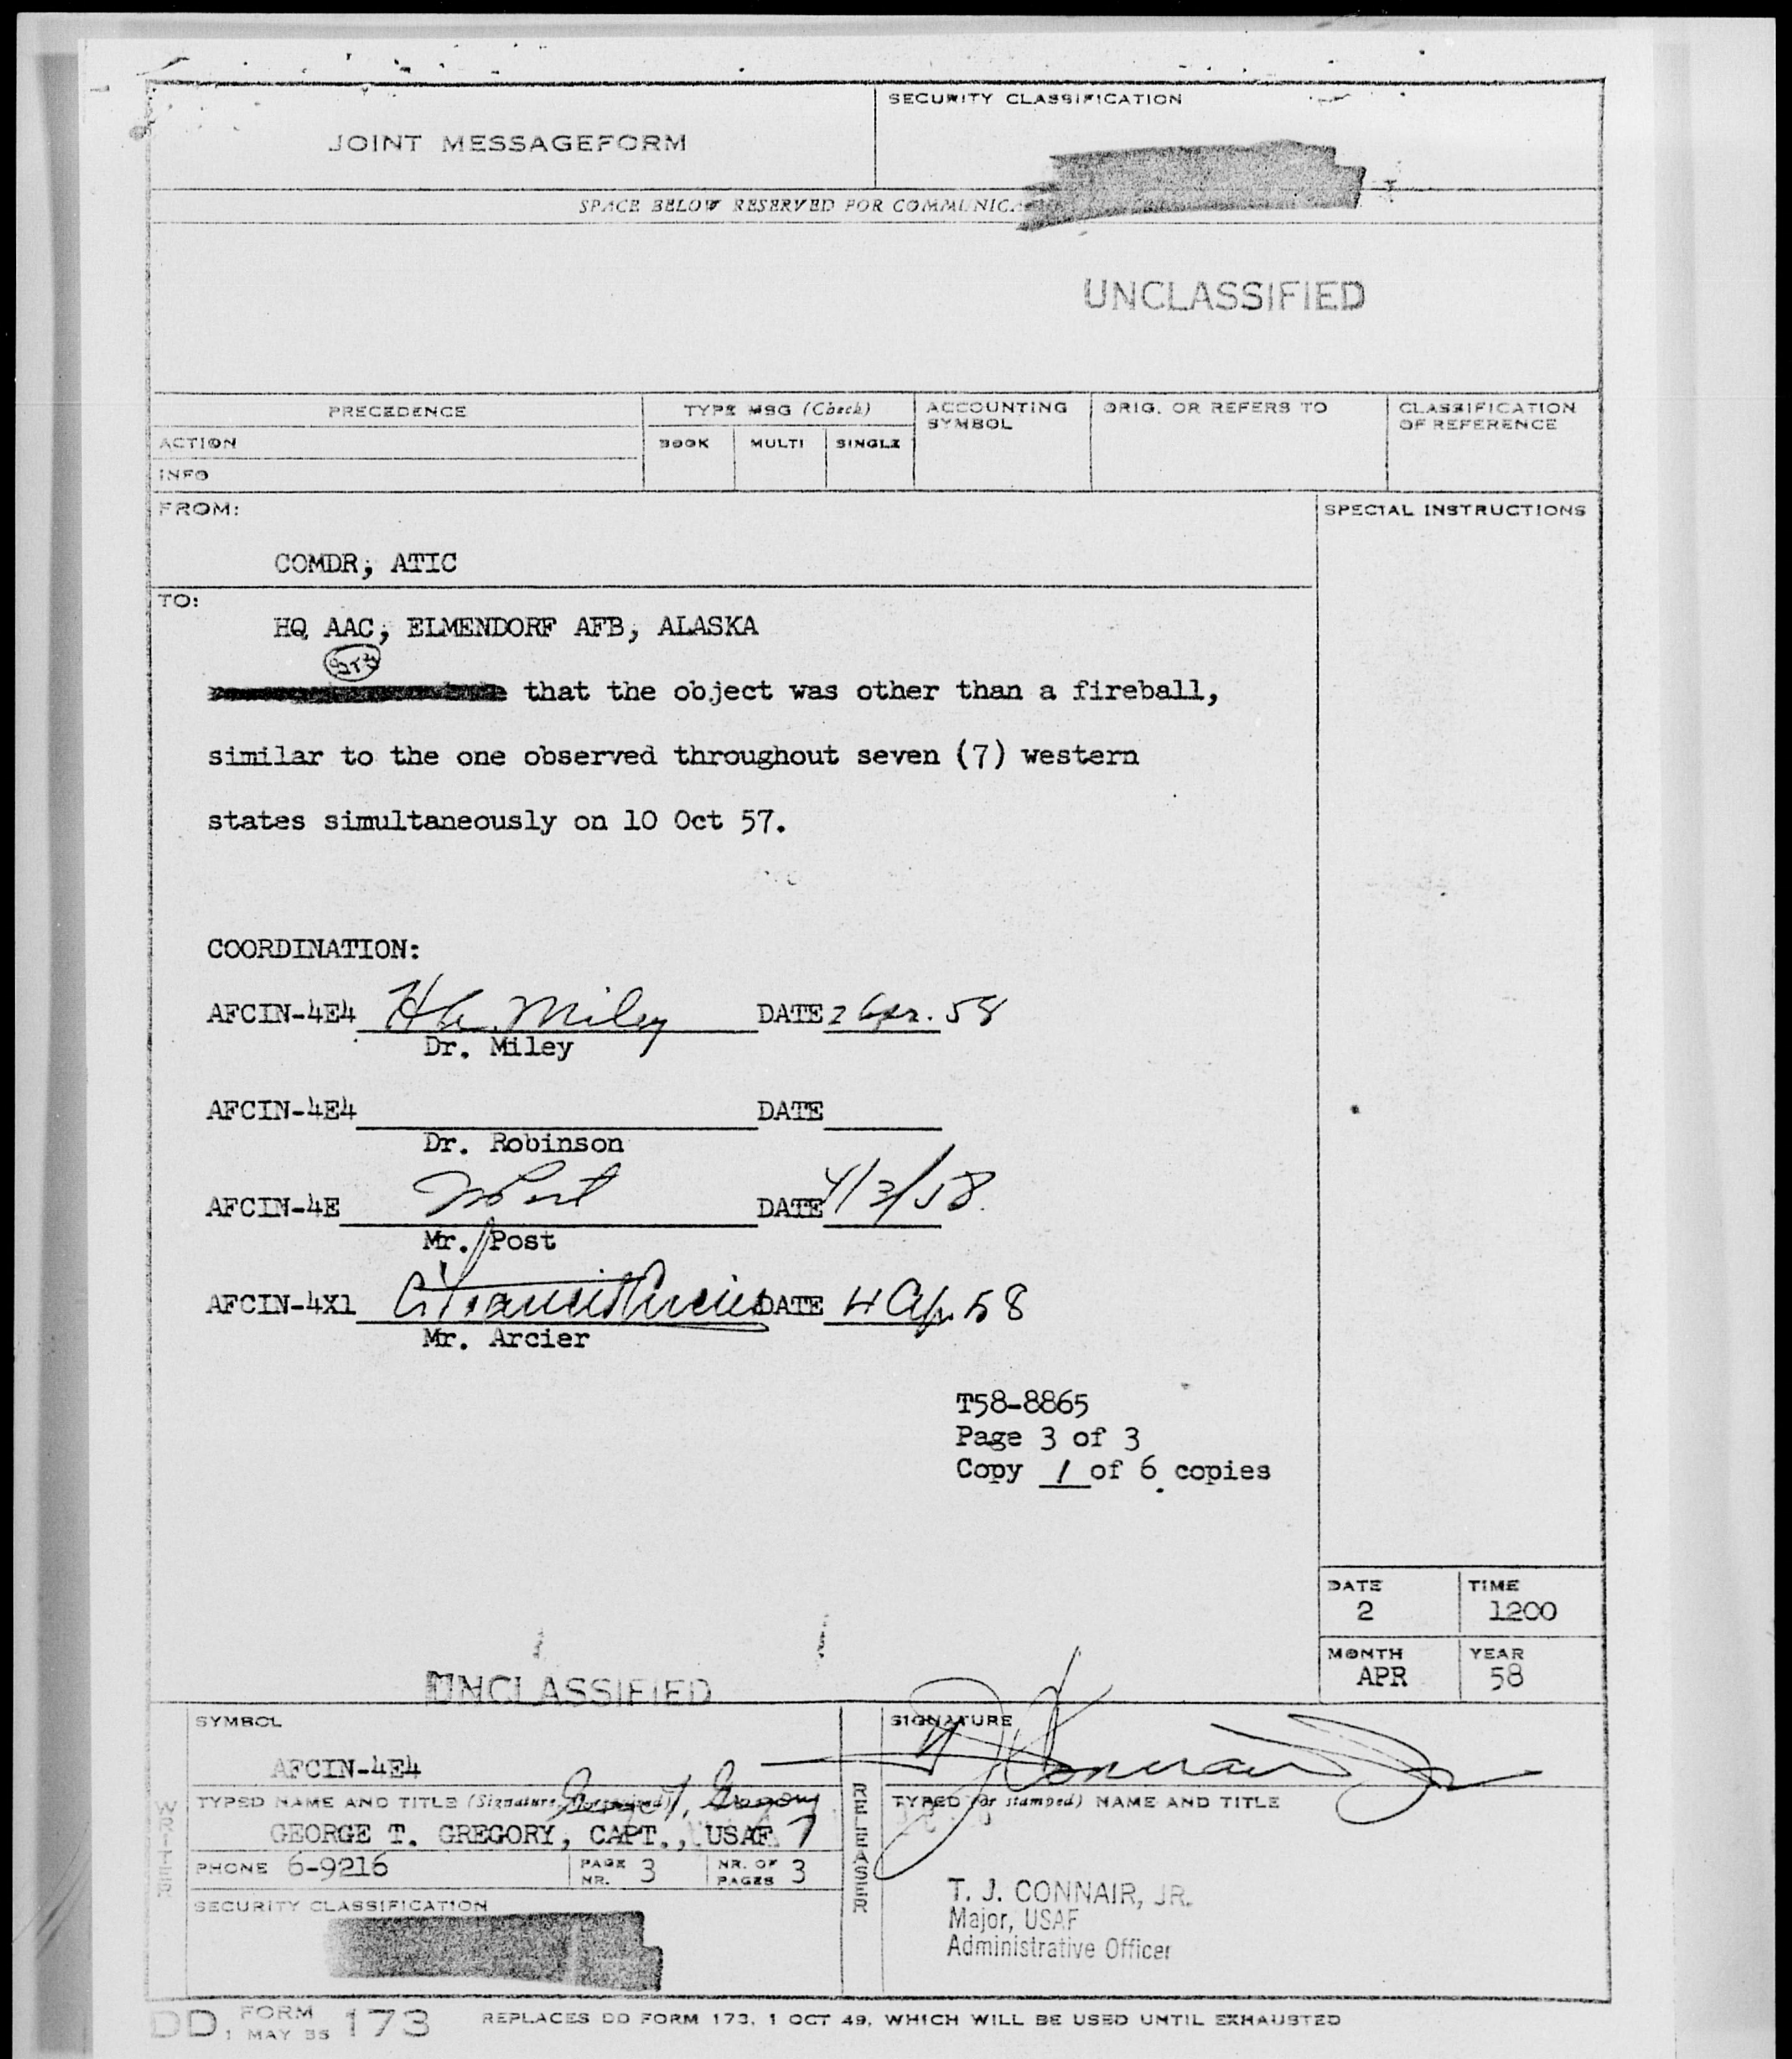 JOINT MESSAGEFORM
SECURITY CLASSIFICATION
SPACE BELOW RESERVED FOR
UNCLASSIFIED
PRECEDENCE
TYPE MSG (Check)
ACCOUNTING SYMBOL
ORIG. OR REFERS TO
CLASSIFICATION OF REFERENCE
ACTION
BOOK MULTI SINGLE
INFO
FROM:
SPECIAL INSTRUCTIONS
COMDR, ATIC
TO:
HQ AAC, ELMENDORF AFB, ALASKA
that the object was other than a fireball,
similar to the one observed throughout seven (7) western
states simultaneously on 10 Oct 57.
COORDINATION:
AFCIN-4E4 Miley DATE 2 Apr. 58
Dr. Miley
AFCIN-4E4 DATE
Dr. Robinson
AFCIN-4E Post DATE 4/3/58.
Mr. Post
AFCIN-4X1 DATE 4 Apr 58
Mr. Arcier
T58-8865
Page 3 of 3
Copy 1 of 6 copies
DATE TIME
2 1200
MONTH YEAR
APR 58
UNCLASSIFIED
SYMBOL
SIGNATURE
AFCIN-4E4
TYPED NAME AND TITLE (Signature, if required) George T. Gregory
TYPED (or stamped) NAME AND TITLE
GEORGE T. GREGORY, CAPT., USAF
PHONE 6-9216 PAGE NR. 3 NR. OF PAGES 3
WRITER
RELEASER
SECURITY CLASSIFICATION
T. J. CONNAIR, JR.
Major, USAF
Administrative Officer
DD FORM 173
1 MAY 55
REPLACES DD FORM 173, 1 OCT 49, WHICH WILL BE USED UNTIL EXHAUSTED